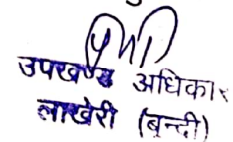 उपखण्ड अधिकार
लाखेरी (बुन्दी)